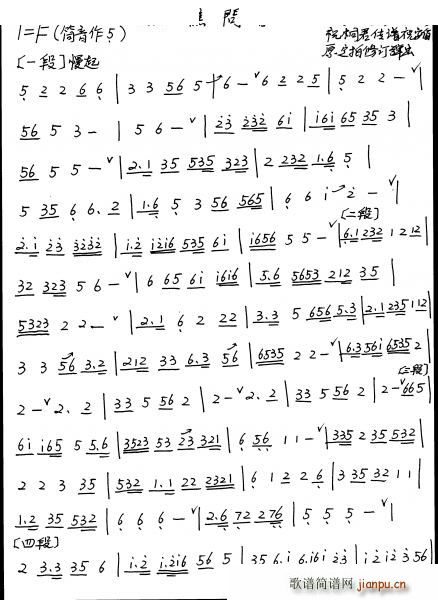 蕉 閣
1=F（筒音作5）
〔一段〕慢起
5 2 2 6 6 | 3 3 5 6 5 | 6 - ∨ 6 2 2 5 | 5 2 2 - ∨ |
5 6 5 3 - | 5 6 - ∨ | 2 3 2 3 2 6 i | i 6 i 6 5 3 5 3 |
5 6 5 5 - ∨ | 2. 1 3 5 5 3 5 3 2 3 | 2 2 3 2 1. 6 5 |
5 3 5 6 6. 2 | 1. 6 5 3 5 6 5 6 5 | 6 6 i → 2 - ∨ |
〔二段〕
2. i 2 3 3 2 3 2 | i. 2 i 2 i 6 5 3 5 6 i | i 6 5 6 5 5 - ∨ | 6. 1 2 3 2 1 2 1 2 |
3 2 3 2 3 5 6 - ∨ | 6 6 5 6 i i 6 i 6 | 5. 6 5 6 5 3 2 1 2 3 5 |
5 3 2 3 2 2 - ∨ | 2. 1 6 2 2 2 | 3. 3 5 6 5 6 5. 3 | 2. 1 2 3 5 1 1 2 |
3 3 5 6 3. 2 | 2 1 2 3 3 6. 3 5 6 | 6 5 3 5 2 2 - ∨ | 6. 3 5 6 i 6 5 3 5 2 |
〔三段〕
2 - ∨ 2. 2 | 3 3 5 5 6 2 | 2 - ∨ 2. 2 | 3 3 5 5 6 2 | 2 - ∨ 6 6 5 |
6 i i 6 5 5 5. 6 | 3 5 2 3 5 3 2 3 3 2 1 | 6 5 6 1 1 - ∨ | 3 3 5 2 3 5 5 3 2 |
2 2 3 3 5 | 5 3 2 1. 1 2 2 2 3 2 1 | 6 1 2 2 6 | 3 3 5 3 2 1 1 |
1. 2 3 5 5 3 2 | 6 6 6 - ∨ | 2. 6 7 2 2 7 6 | 5 5 5 - ∨ |
〔四段〕
2 3. 3 3 5 6 | i. 2 i. 2 i 6 5 6 5 | 3 5 6. i 6. i 6 i 2 3 | i 2 i 2 3 5 6
歌谱简谱网
jianpu.cn